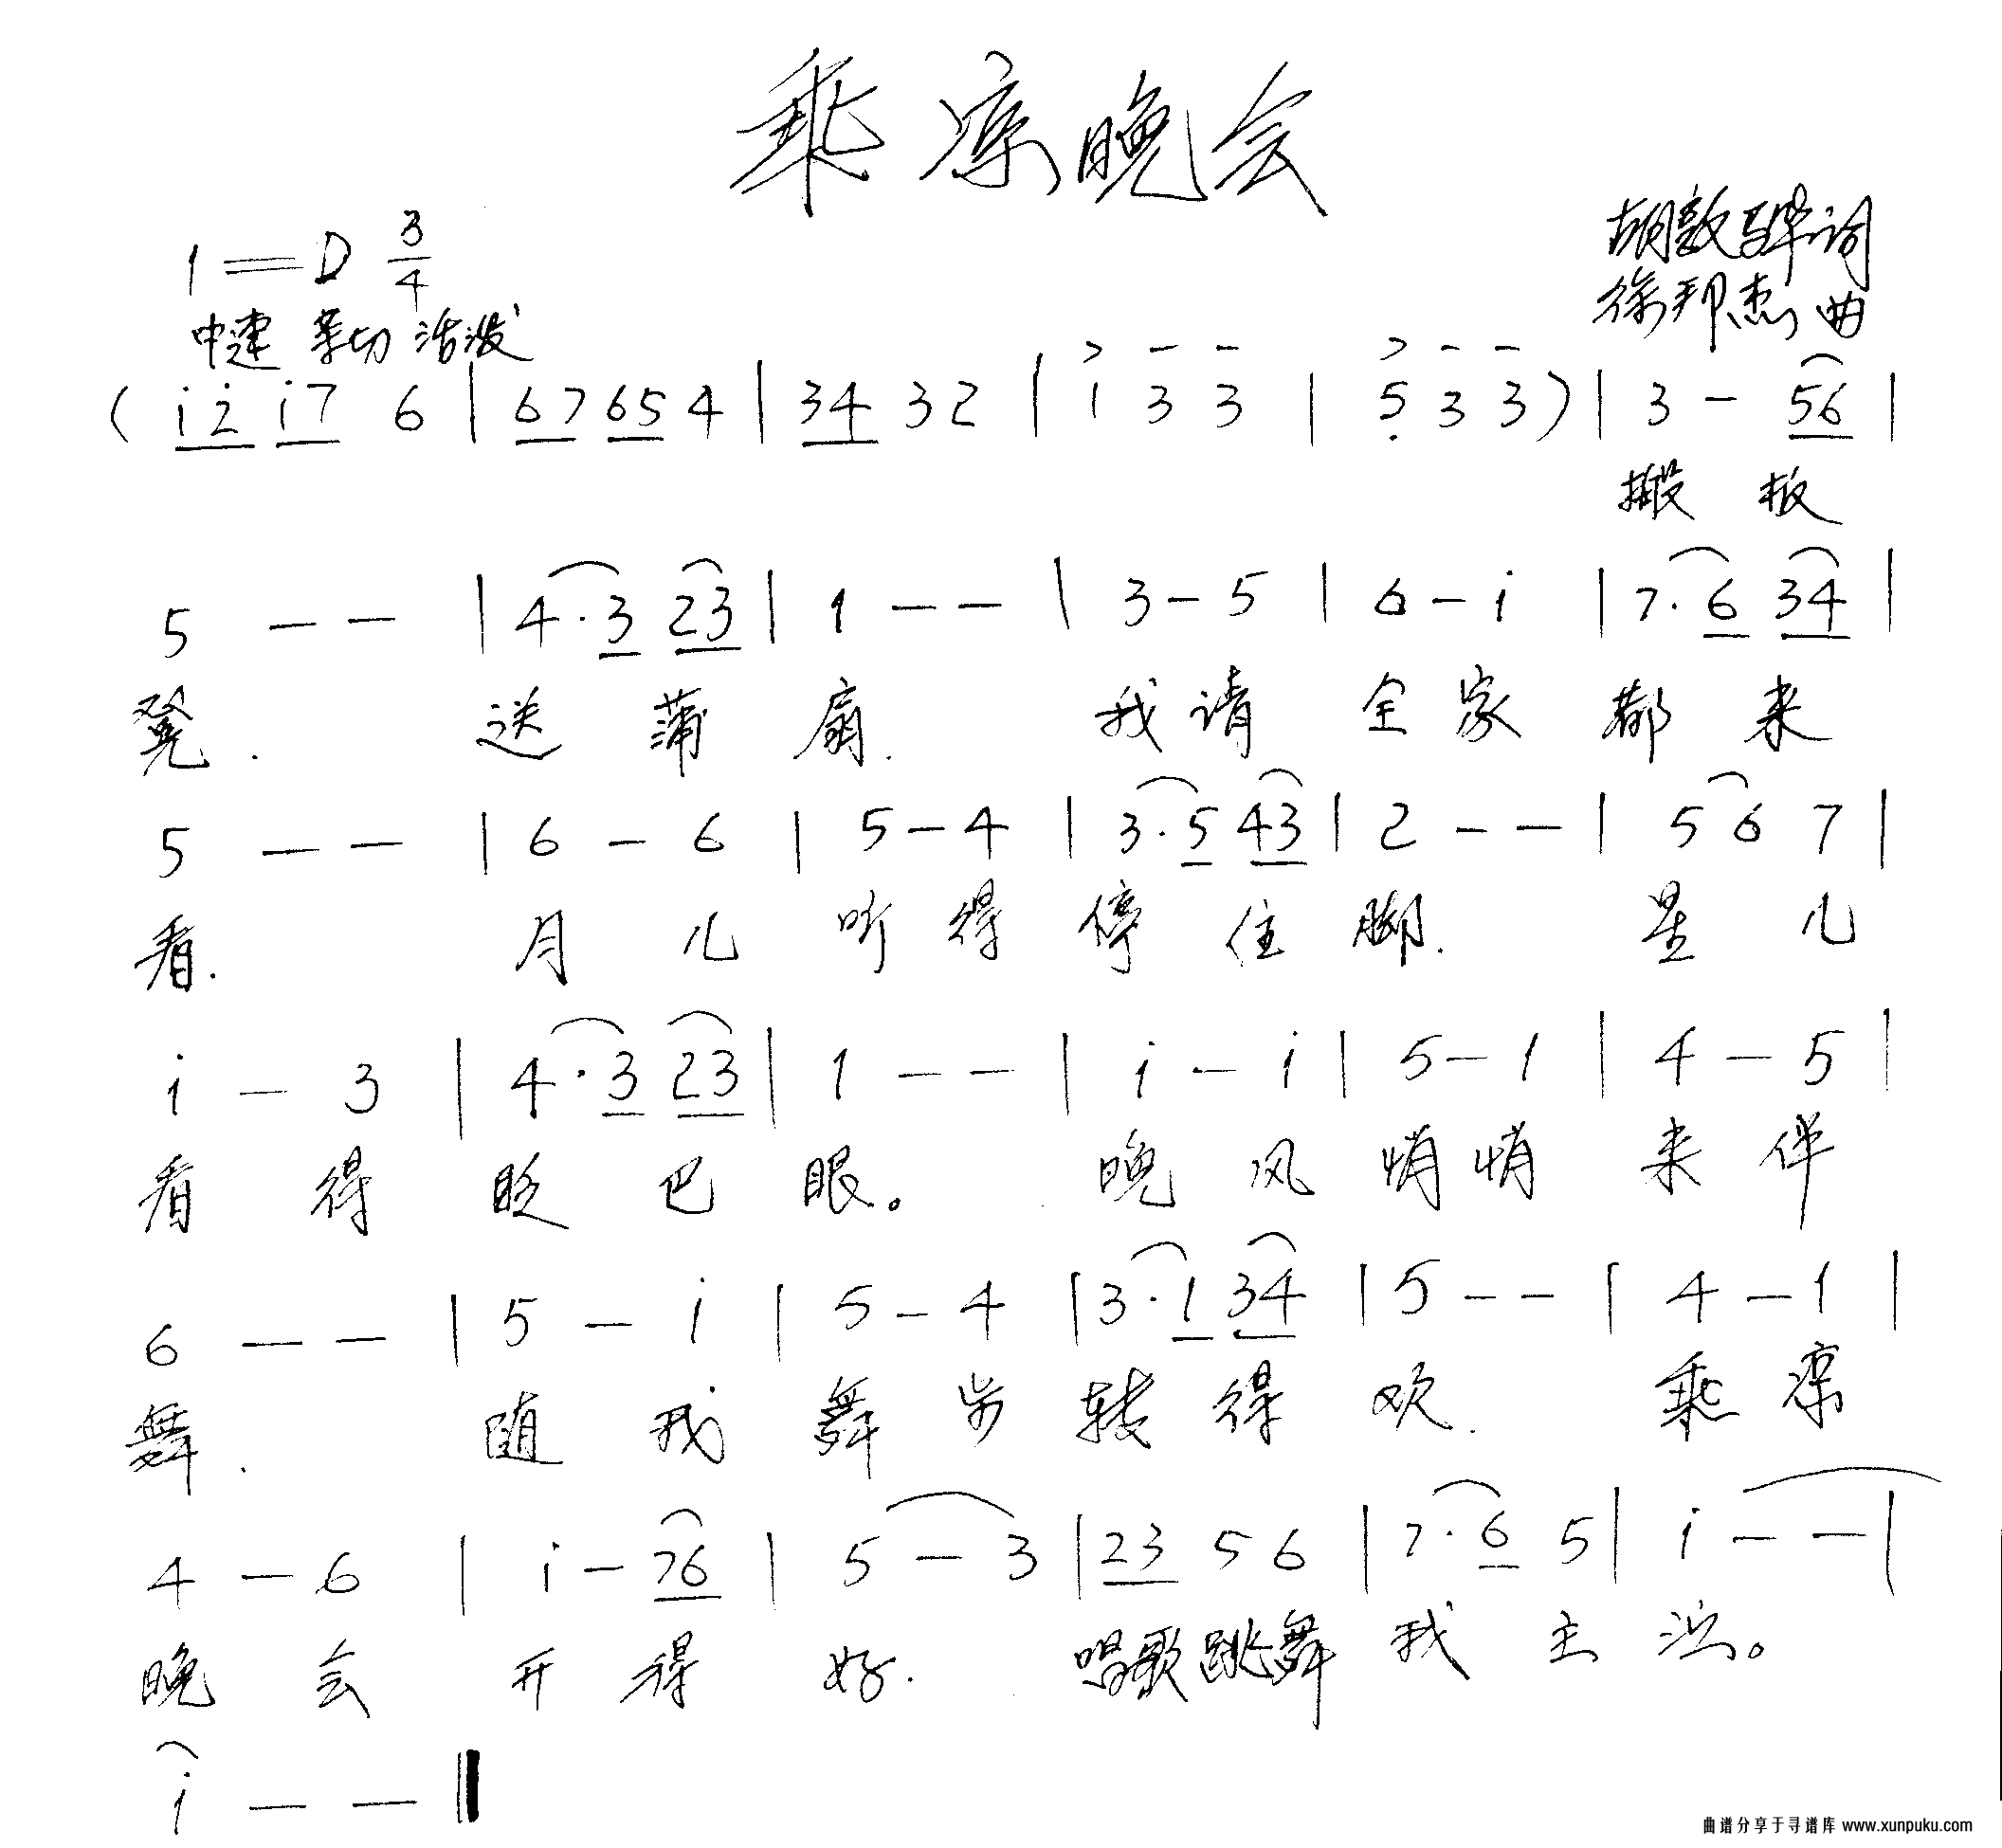 乘凉晚会
1=D 3/4
胡敦骅词
中速 亲切 活泼
徐邦杰 曲
( i̲2̲̇ i̲7̲ 6 | 6̲7̲ 6̲5̲ 4 | 3̲4̲ 3 2 | i 3 3 | 5̣ 3 3 ) | 3 - 5̲6̲ |
搬 板
5 - - | 4 · 3̲ 2̲3̲ | 1 - - | 3 - 5 | 6 - i | 7 · 6̲ 3̲4̲ |
凳. 送 蒲 扇. 我 请 全 家 都 来
5 - - | 6 - 6 | 5 - 4 | 3 · 5̲ 4̲3̲ | 2 - - | 5 6 7 |
看. 月 儿 听 得 停 住 脚. 星 儿
i - 3 | 4 · 3̲ 2̲3̲ | 1 - - | i - i | 5 - 1 | 4 - 5 |
看 得 眨 巴 眼。 晚 风 悄 悄 来 伴
6 - - | 5 - i | 5 - 4 | 3 · 1̲ 3̲4̲ | 5 - - | 4 - 1 |
舞. 随 我 舞 步 转 得 欢. 乘 凉
4 - 6 | i - 7̲6̲ | 5 - 3 | 2̲3̲ 5 6 | 7 · 6̲ 5 | i - - |
晚 会 开 得 好. 唱歌跳舞 我 主 演。
i - - ‖
曲谱分享于寻谱库 www.xunpuku.com